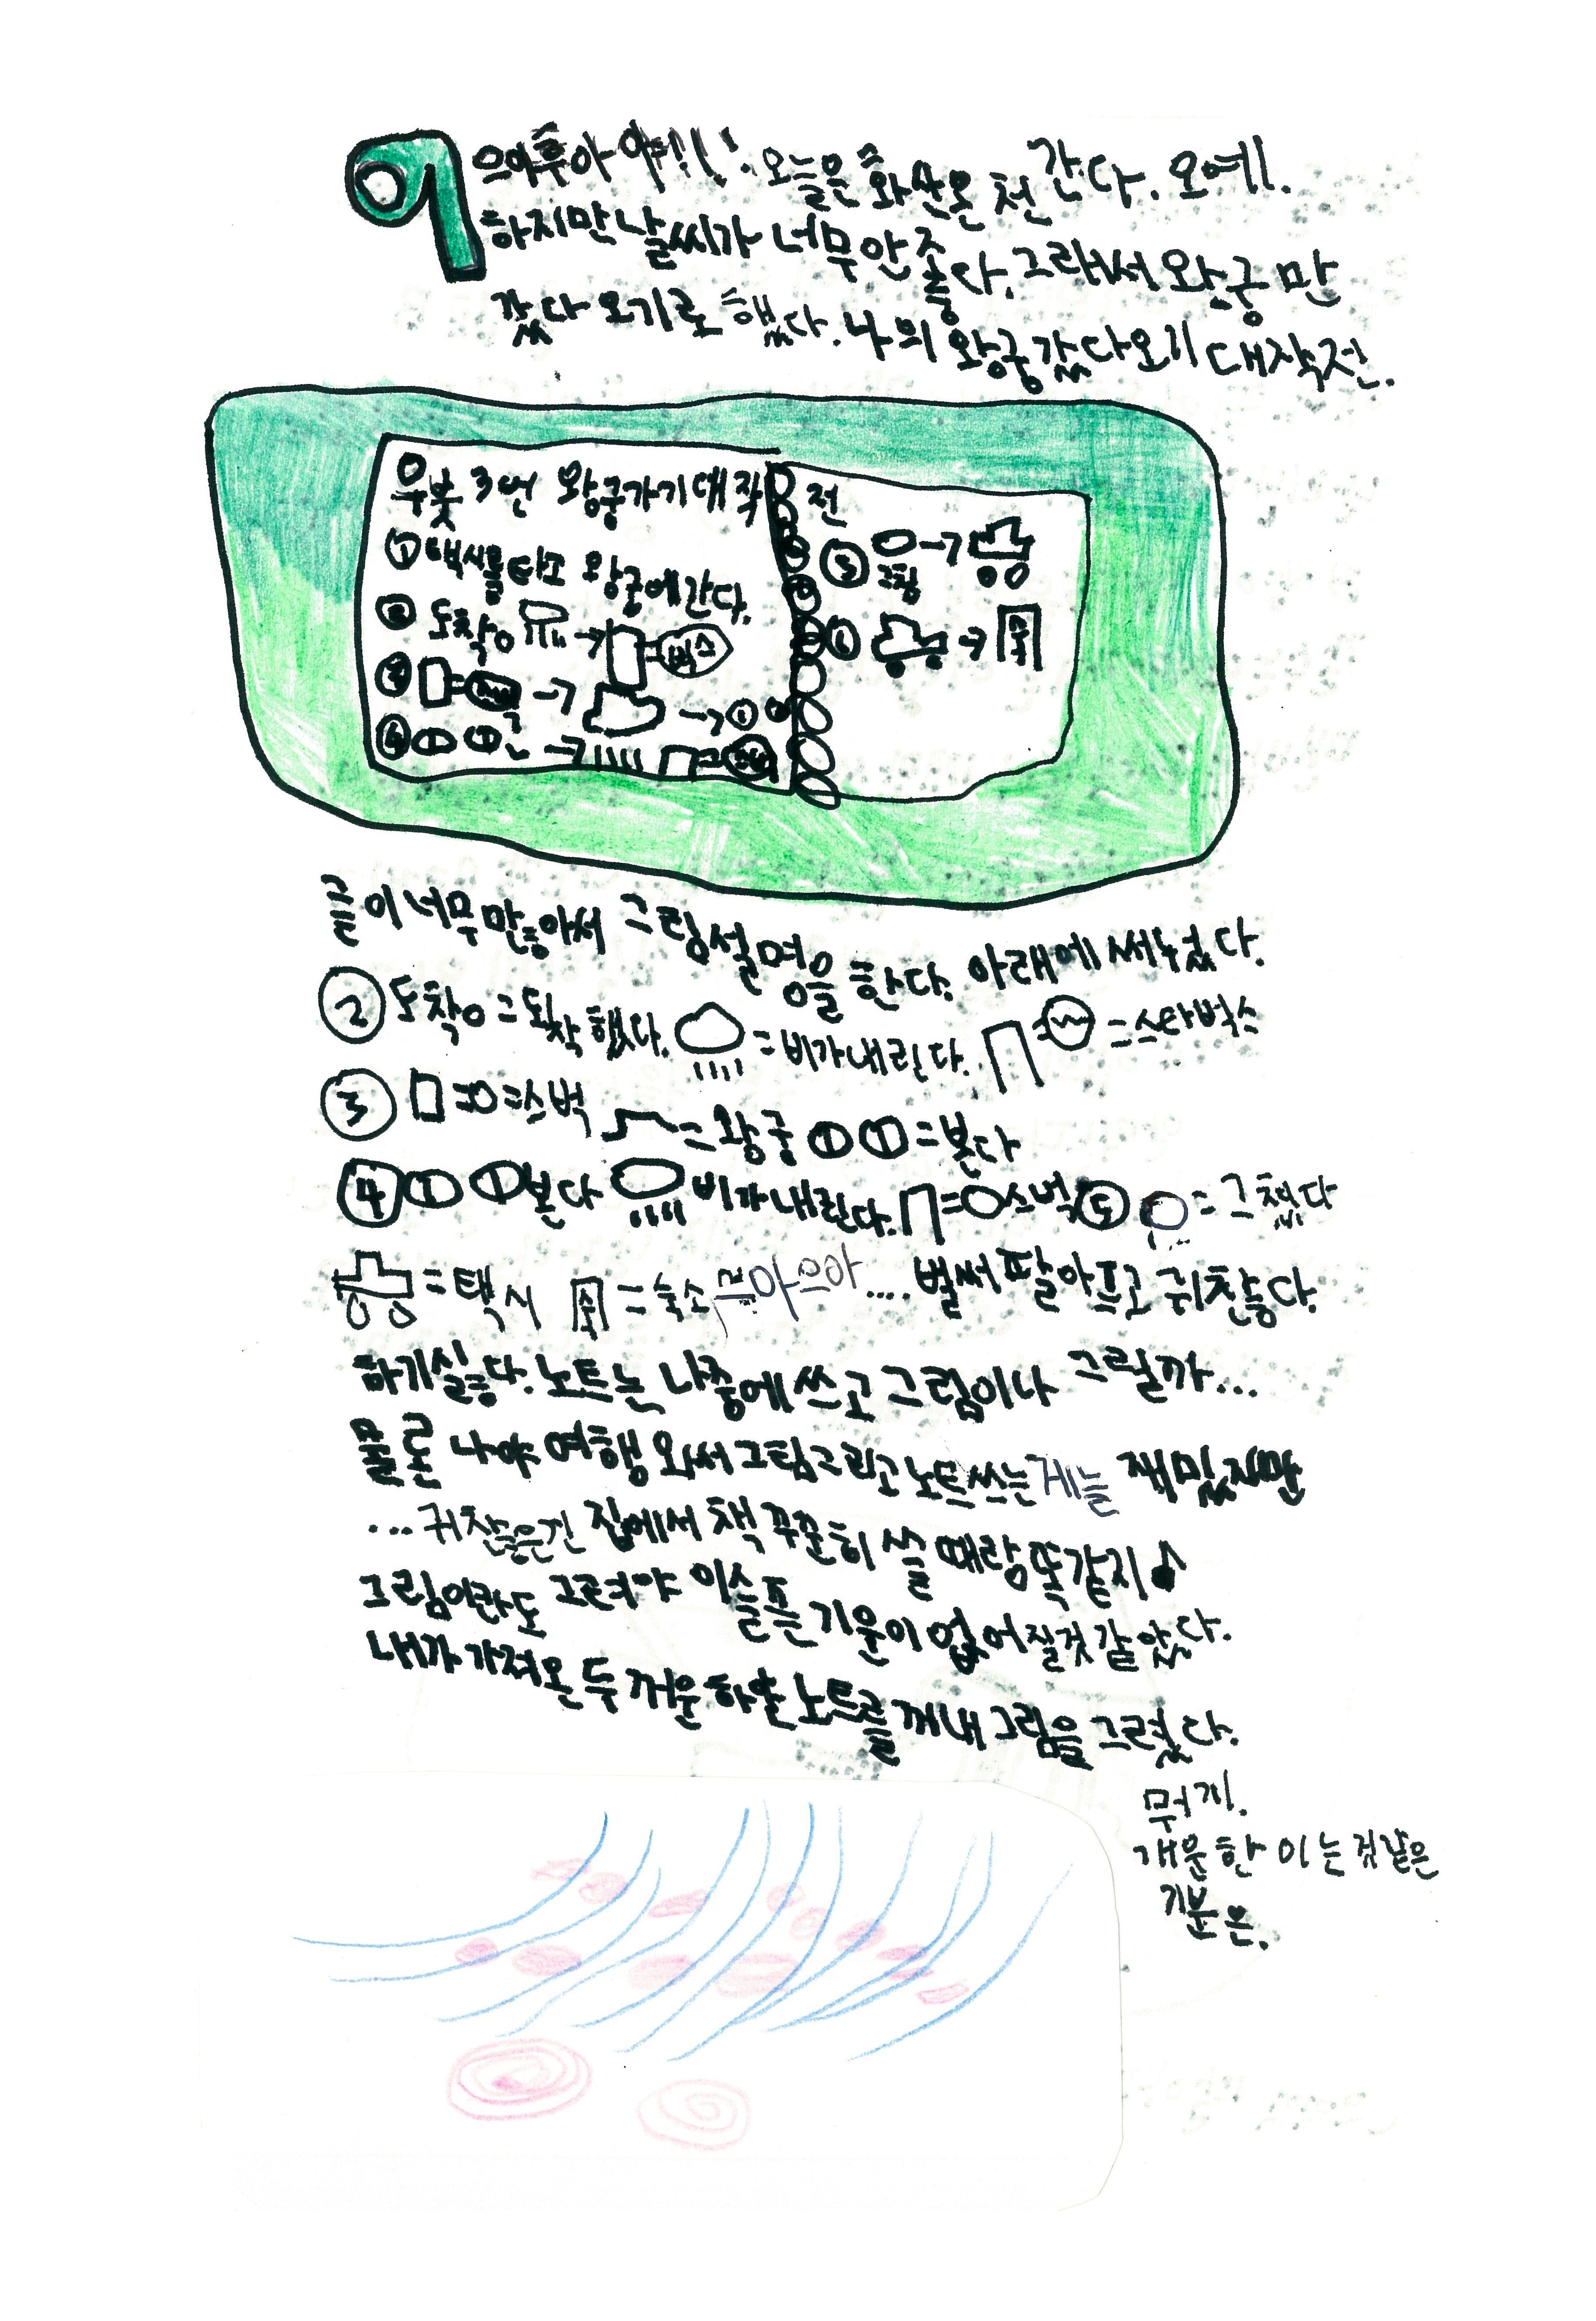 9
으아후아 아!!! 오늘은 화산온천 간다. 오예!.
하지만 날씨가 너무 안 좋다. 그래서 왕궁만
갔다 오기로 했다. 나의 왕궁 갔다오기 대작전.
우붓 3번 왕궁가기 대작전
① 택시를 타고 왕궁에 간다.
② 도착ㅇ → 벅스
③ → →
④ →
⑤ 그침 →
⑥ → 숙
글이 너무 많아서 그림 설명을 한다. 아래에 써 놨다.
② 도착ㅇ = 도착했다. = 비가 내린다. = 스타벅스
③ = 스벅 = 왕궁 = 본다
④ 본다 비가 내린다. 스벅 ⑤ = 그쳤다
= 택시 숙 = 숙소 으아으아 .... 벌써 팔 아프고 귀찮다.
하기 싫다. 노트는 나중에 쓰고 그림이나 그릴까...
물론 나야 여행 와서 그림 그리고 노트 쓰는 게 늘 재밌지만
... 귀찮은 건 집에서 책 꾸준히 쓸 때랑 똑같지♪
그림이라도 그려야 이 슬픈 기운이 없어질 것 같았다.
내가 가져온 두꺼운 하얀 노트를 꺼내 그림을 그렸다.
뭐지.
개운한 이는 것 같은
기분은.